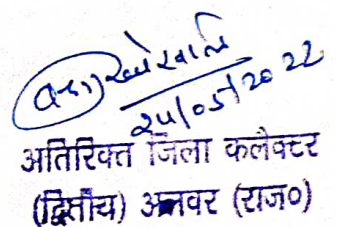 24/05/2022
अतिरिक्त जिला कलैक्टर
(द्वितीय) अलवर (राज०)